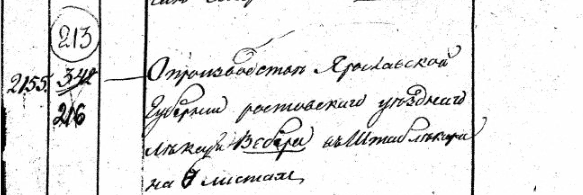 213
2155. 342 О производствѣ Ярославской
216 Губерніи ростовскаго уѣзднаго
лѣкаря Вебера въ Штабъ лѣкаря
на листахъ